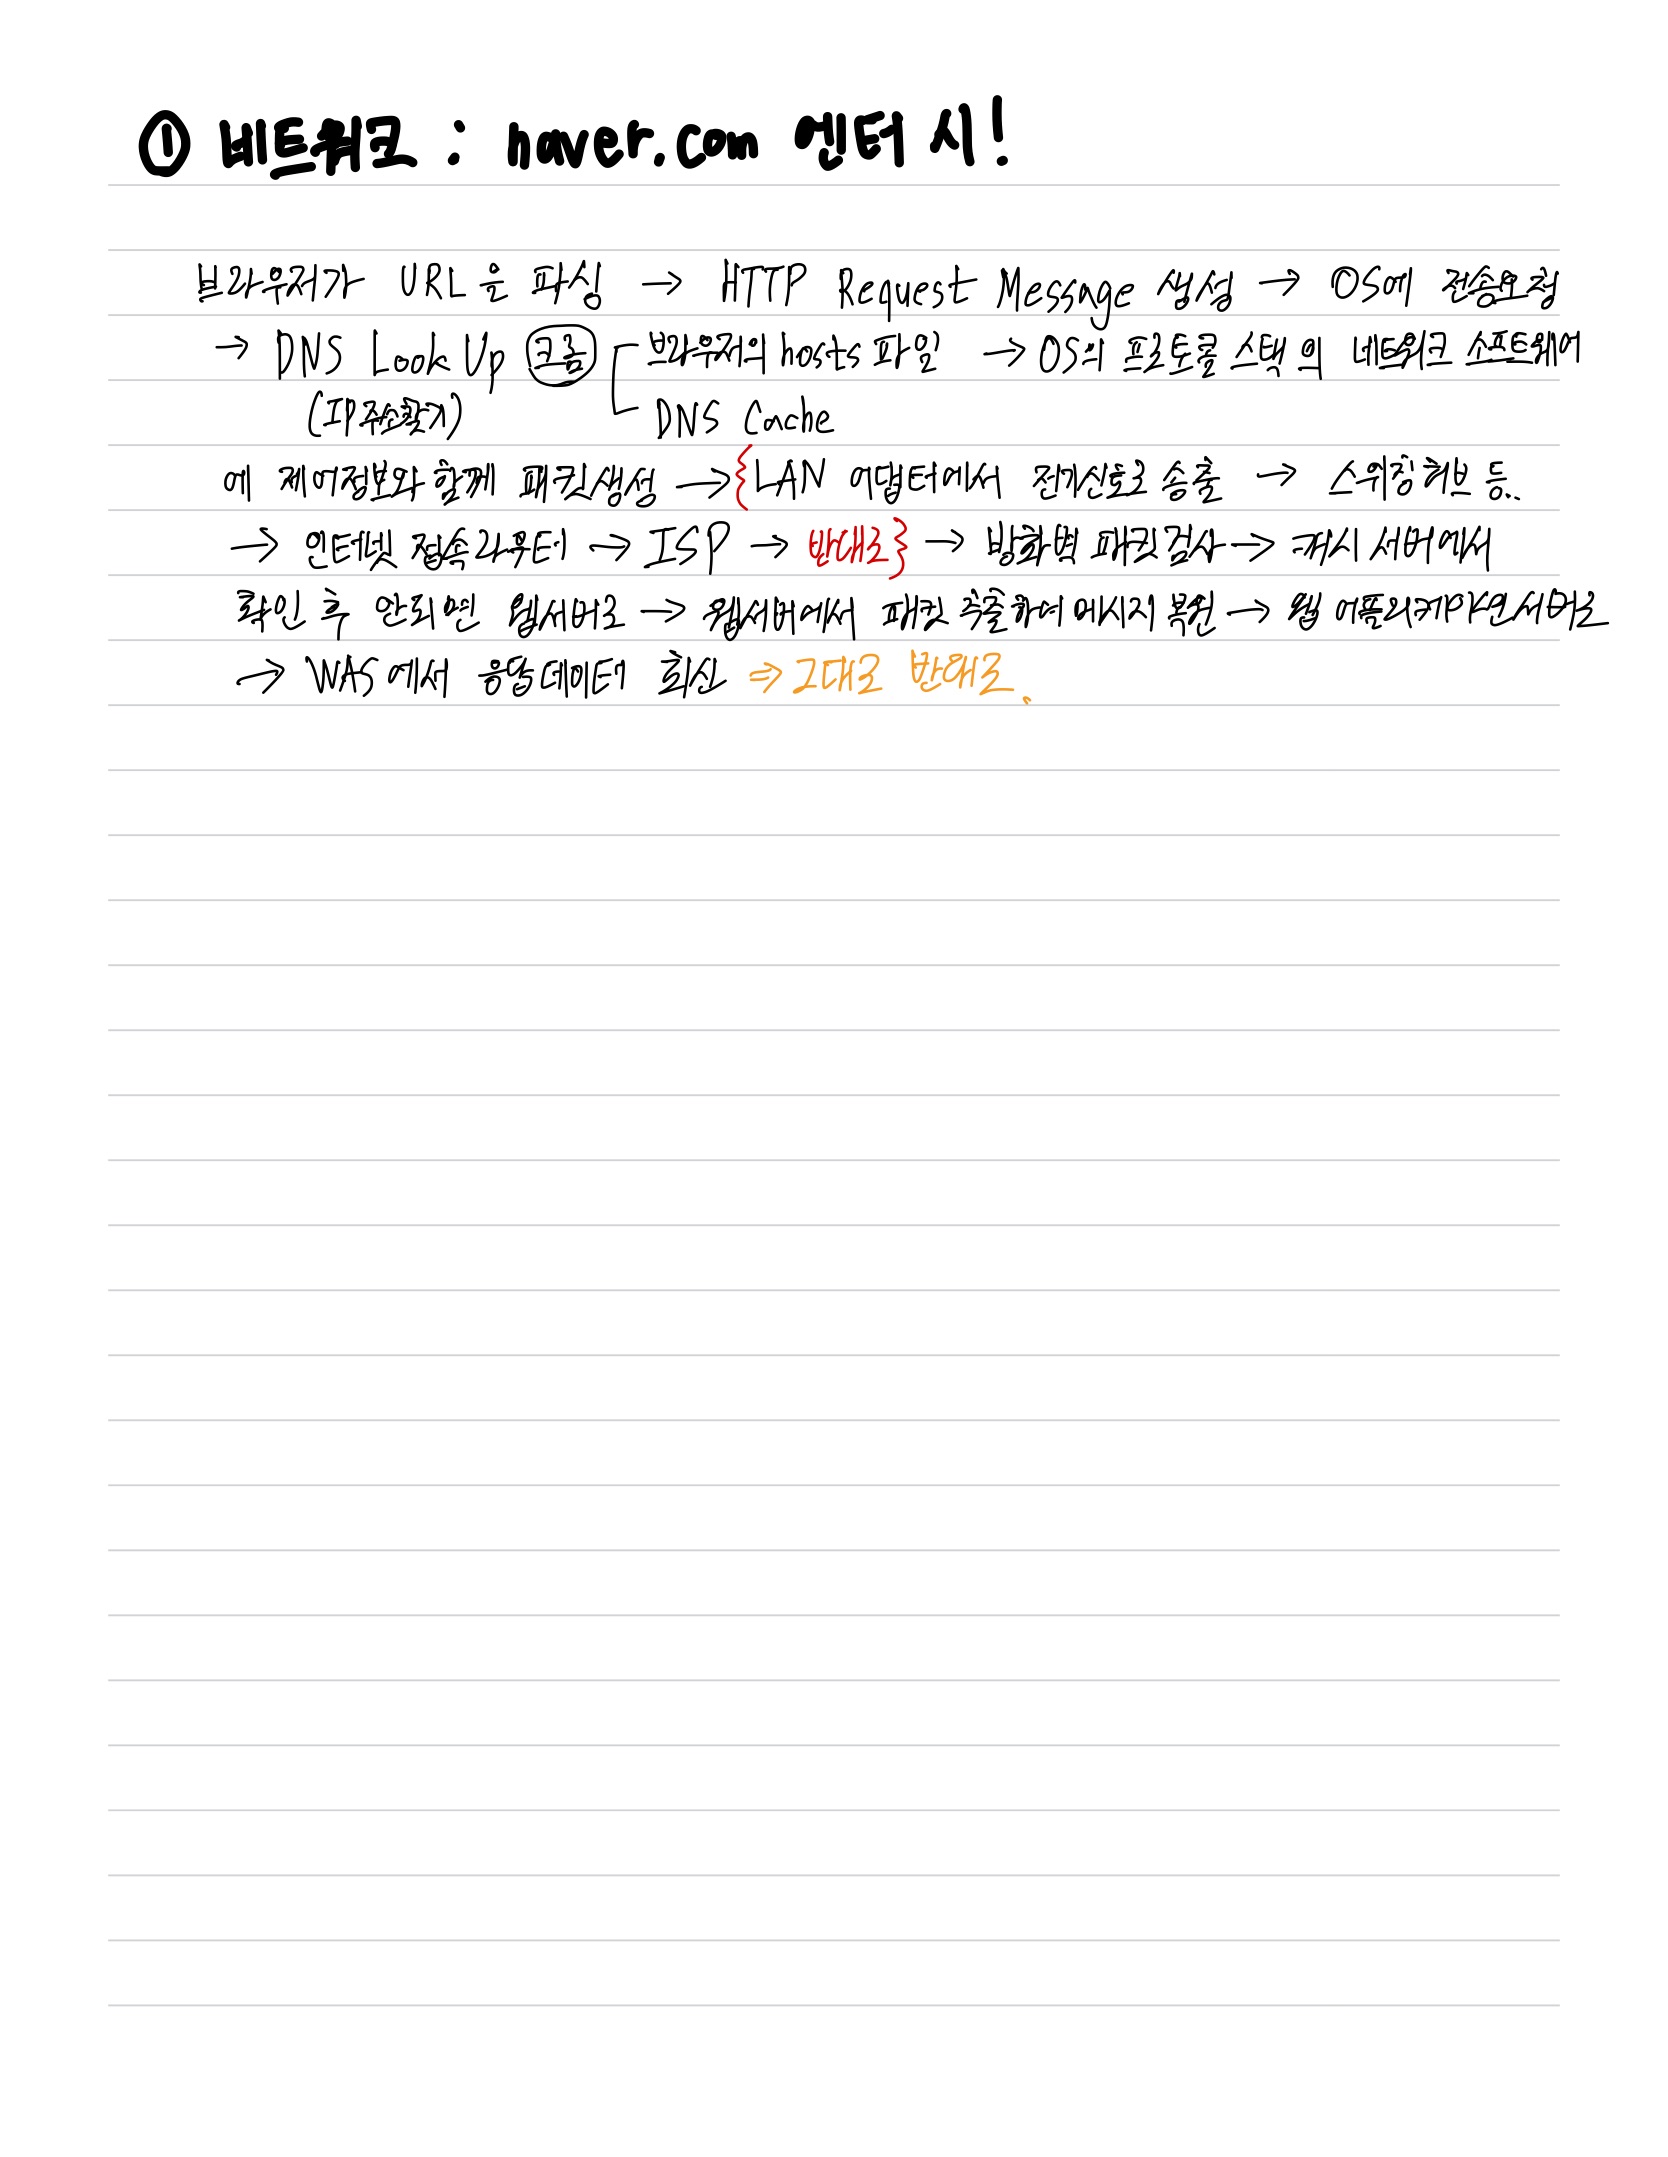 ① 네트워크 : naver.com 엔터 시!
브라우저가 URL을 파싱 → HTTP Request Message 생성 → OS에 전송요청
→ DNS Look Up 크롬 [ 브라우저의 hosts 파일 → OS의 프로토콜 스택의 네트워크 소프트웨어
(IP주소찾기) DNS Cache
에 제어정보와 함께 패킷생성 → { LAN 어댑터에서 전기신호로 송출 → 스위칭허브 등..
→ 인터넷 접속 라우터 → ISP → 반대로 } → 방화벽 패킷검사 → 캐시 서버에서
확인 후 안되면 웹서버로 → 웹서버에서 패킷 추출하여 메시지 복원 → 웹 어플리케이션서버로
→ WAS에서 응답데이터 회신 ⇒ 그대로 반대로.